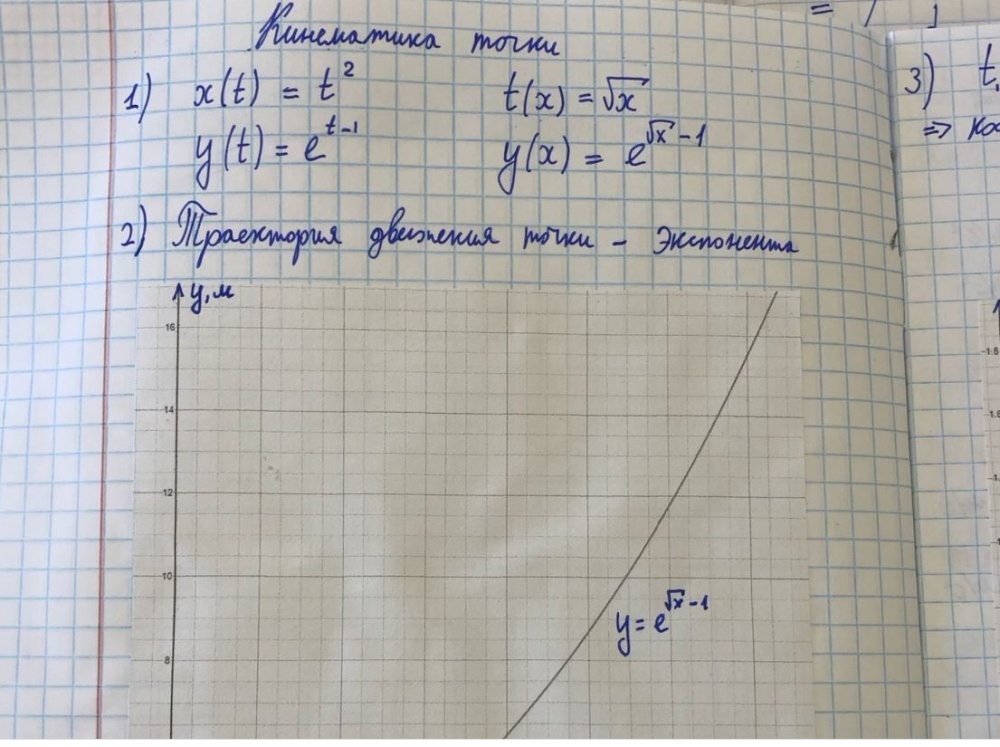 Кинематика точки
1) x(t) = t² t(x) = √x
y(t) = e^{t-1} y(x) = e^{√x - 1}
2) Траектория движения точки - Экспонента
y, м
16
14
12
10
8
y = e^{√x - 1}
3) t
⇒